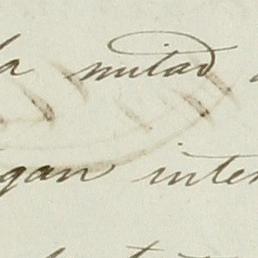 la mitad
gan inter